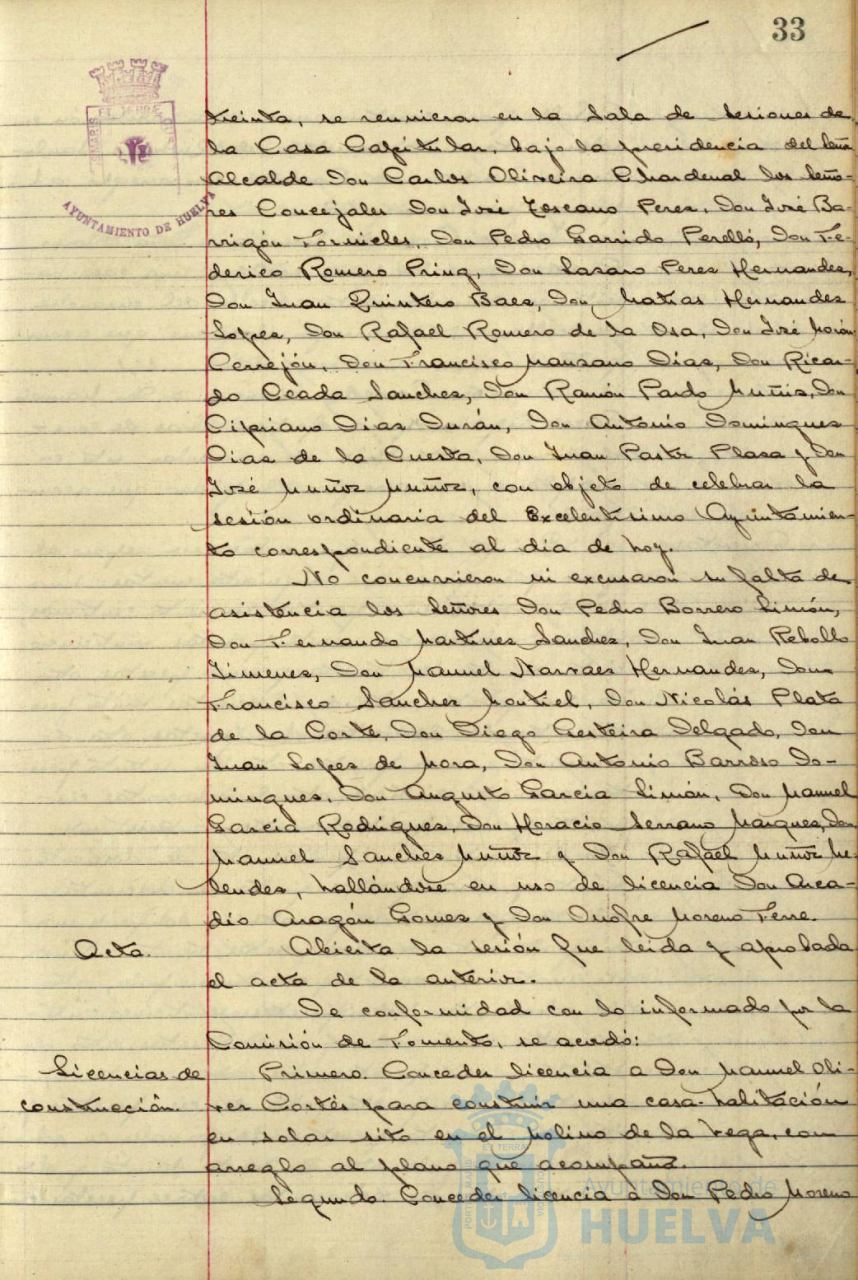 33
AYUNTAMIENTO DE HUELVA
treinta, se reunieron en la Sala de Sesiones de
la Casa Capitular, bajo la presidencia del Señor
Alcalde Don Carlos Oliveira Chardenal los Seño-
res Concejales Don José Toscano Peres, Don José Ba-
rrigón Fornieles, Don Pedro Garrido Perelló, Don Fe-
derico Romero Pring, Don Lasaro Peres Hernandes,
Don Juan Quintero Baes, Don Matias Hernandes
Lopes, Don Rafael Romero de la Osa, Don José Morón
Cerrejón, Don Francisco Mansano Dias, Don Ricar-
do Ceada Sanches, Don Ramón Pardo Muñis, Don
Cipriano Dias Durán, Don Antonio Domingues
Dias de la Cuesta, Don Juan Pastor Plasa y Don
José Muñoz Muñoz, con objeto de celebrar la
sesión ordinaria del Excelentisimo Ayuntamien-
to correspondiente al dia de hoy.
No concurrieron ni excusaron su falta de
asistencia los Señores Don Pedro Borrero Limón,
Don Fernando Martines Sanches, Don Juan Rebollo
Jimenes, Don Manuel Narvaes Hernandes, Don
Francisco Sanches Montiel, Don Nicolás Plata
de la Corte, Don Diego Gesteira Delgado, Don
Juan Lopes de Mora, Don Antonio Barroso Do-
mingues, Don Augusto Garcia Limón, Don Manuel
Garcia Rodrigues, Don Horacio Serrano Marques, Don
Manuel Sanches Muñoz y Don Rafael Muñoz Me-
lendes, hallándose en uso de licencia Don Arca-
dio Aragón Gomes y Don Onofre Moreno Ferre.
Acta.
Abierta la sesión fué leida y aprobada
el acta de la anterior.
De conformidad con lo informado por la
Comisión de Fomento, se acordó:
Licencias de
construcción.
Primero. Conceder licencia a Don Manuel Oli-
ver Cortés para construir una casa-habitación
en solar sito en el Molino de la Vega, con
arreglo al plano que acompaña.
Segundo. Conceder licencia á Don Pedro Moreno
Ayuntamiento de
HUELVA